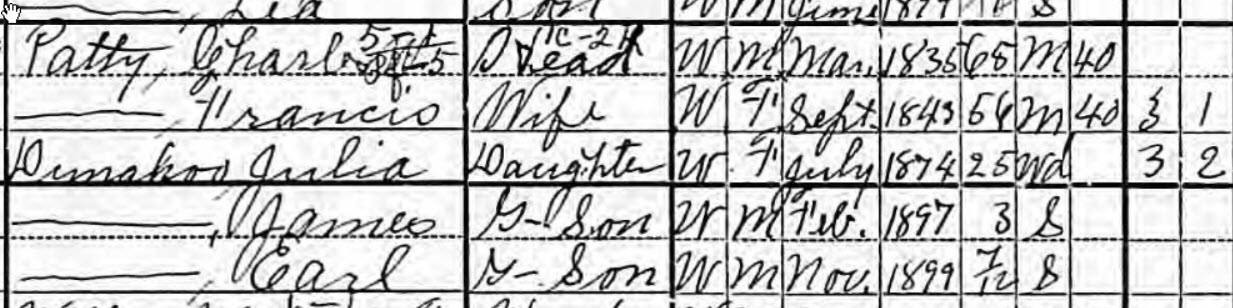 Son W M June 1899 S
Patty, Charl Head W M Mar. 1835 65 M 40
—— , Francis Wife W F Sept. 1843 56 M 40 1
Julia Daughter W F July 1874 25 Wd 3 2
—— , James G-Son W M Feb. 1897 3 S
—— , Earl G-Son W M Nov. 1899 7/12 S